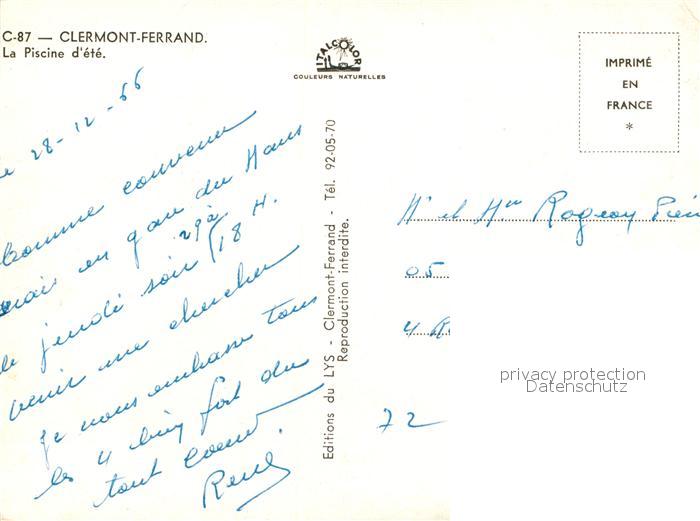 C-87 — CLERMONT-FERRAND.
La Piscine d'été.
ITALCOLOR
COULEURS NATURELLES
IMPRIMÉ
EN
FRANCE
*
28-12-66
Comme convenu
en gare du Mans
le jeudi soir 29 à 18 H.
venir me chercher
je vous embrasse tous
les 4 bien fort du
tout coeur.
René
Editions du LYS - Clermont-Ferrand - Tél. 92-05-70
Reproduction interdite.
Mr et Mme
05
4
72
privacy protection
Datenschutz